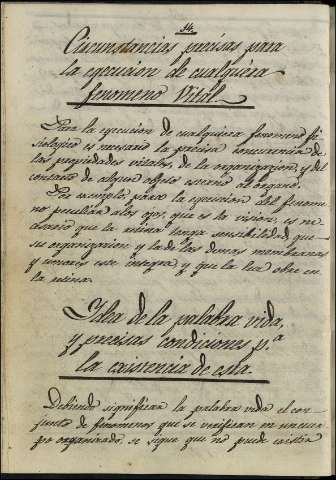 34.
Circunstancias precisas para
la egecucion de cualquiera
fenomeno Vital.
Para la egecucion de cualquiera fenomeno fi
siologico es necesario la precisa concurrencia de
las propiedades vitales, de la organizacion, y del
contacto de algun objeto esterno al organo.
Por exemplo para la egecucion del fenome
no peculiar a los ojos, que es la vision, es ne
cesario que la retina tenga sensibilidad, que
su organizacion y la de las demas membranas
y umores este integra, y que la luz obre en
la retina.
Idea de la palabra vida,
y precisas condiciones p.a
la existencia de esta.
Debiendo significar la palabra vida el con
junto de fenomenos que se verifican en un cuer
po organizado, se sigue que no puede existir